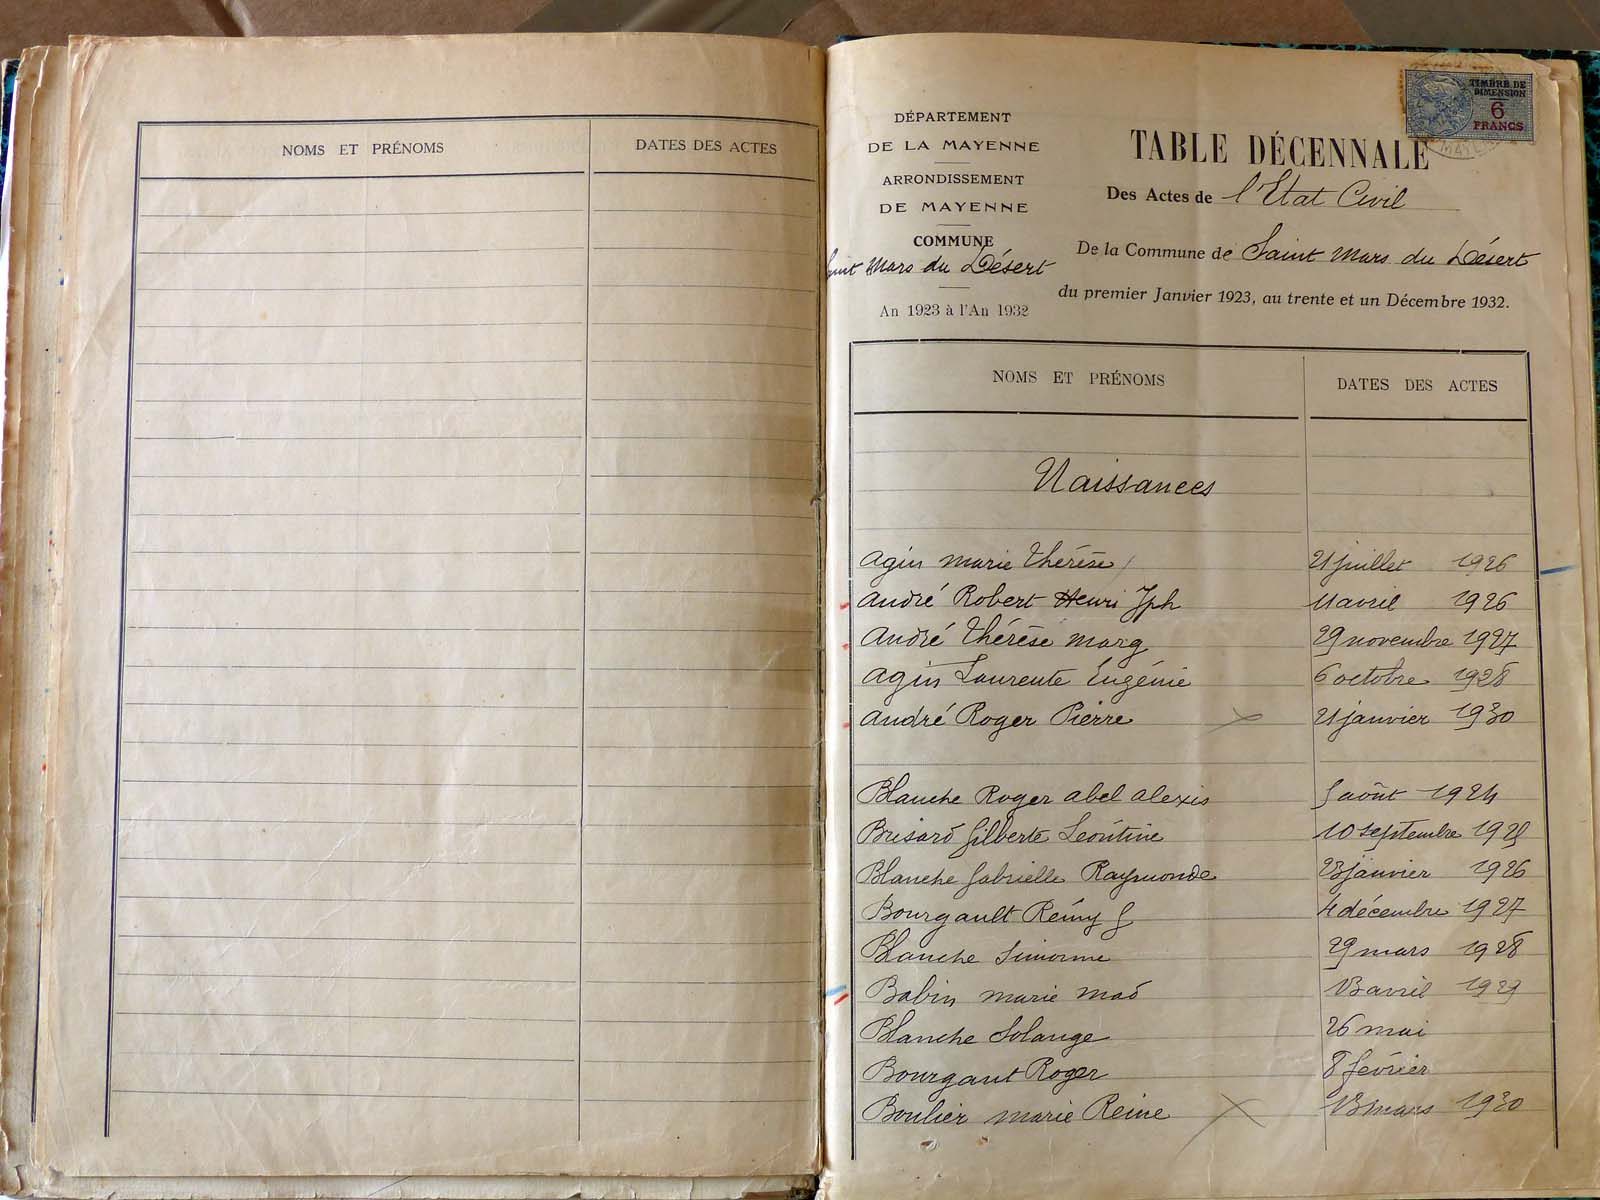 NOMS ET PRÉNOMS DATES DES ACTES
DÉPARTEMENT
DE LA MAYENNE
ARRONDISSEMENT
DE MAYENNE
COMMUNE
Saint Mars du Désert
An 1923 à l'An 1932
TIMBRE DE
DIMENSION
6
FRANCS
MAYEN
TABLE DÉCENNALE
Des Actes de l'Etat Civil
De la Commune de Saint Mars du Désert
du premier Janvier 1923, au trente et un Décembre 1932.
NOMS ET PRÉNOMS DATES DES ACTES
Naissances
Agin Marie Thérèse 21 juillet 1926
André Robert Henri Jph 11 avril 1926
André Thérèse Marg 29 novembre 1927
Agin Laurente Eugénie 6 octobre 1928
André Roger Pierre 21 janvier 1930
Blanche Roger Abel Alexis 5 août 1924
Brisard Gilberte Léontine 10 septembre 1925
Blanche Gabrielle Raymonde 23 janvier 1926
Bourgault Rémy G 4 décembre 1927
Blanche Simonne 29 mars 1928
Babin Marie Mad 13 avril 1929
Blanche Solange 26 mai
Bourgaut Roger 8 février
Boulier Marie Reine 13 mars 1930